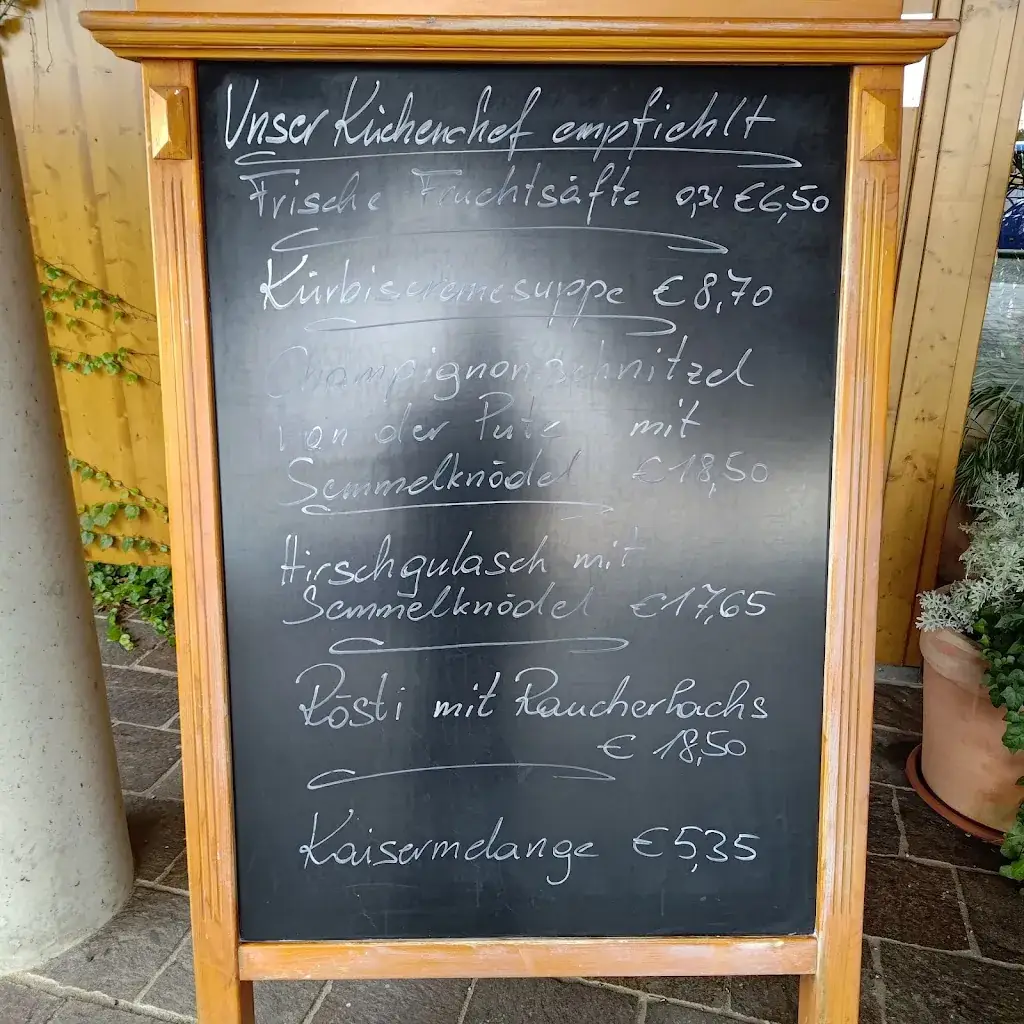 Unser Küchenchef empfiehlt
Frische Fruchtsäfte 0,3l €6,50
Kürbiscremesuppe €8,70
Champignonschnitzel
von der Pute mit
Semmelknödel €18,50
Hirschgulasch mit
Semmelknödel €17,65
Rösti mit Raucherlachs
€ 18,50
Kaisermelange €5,35